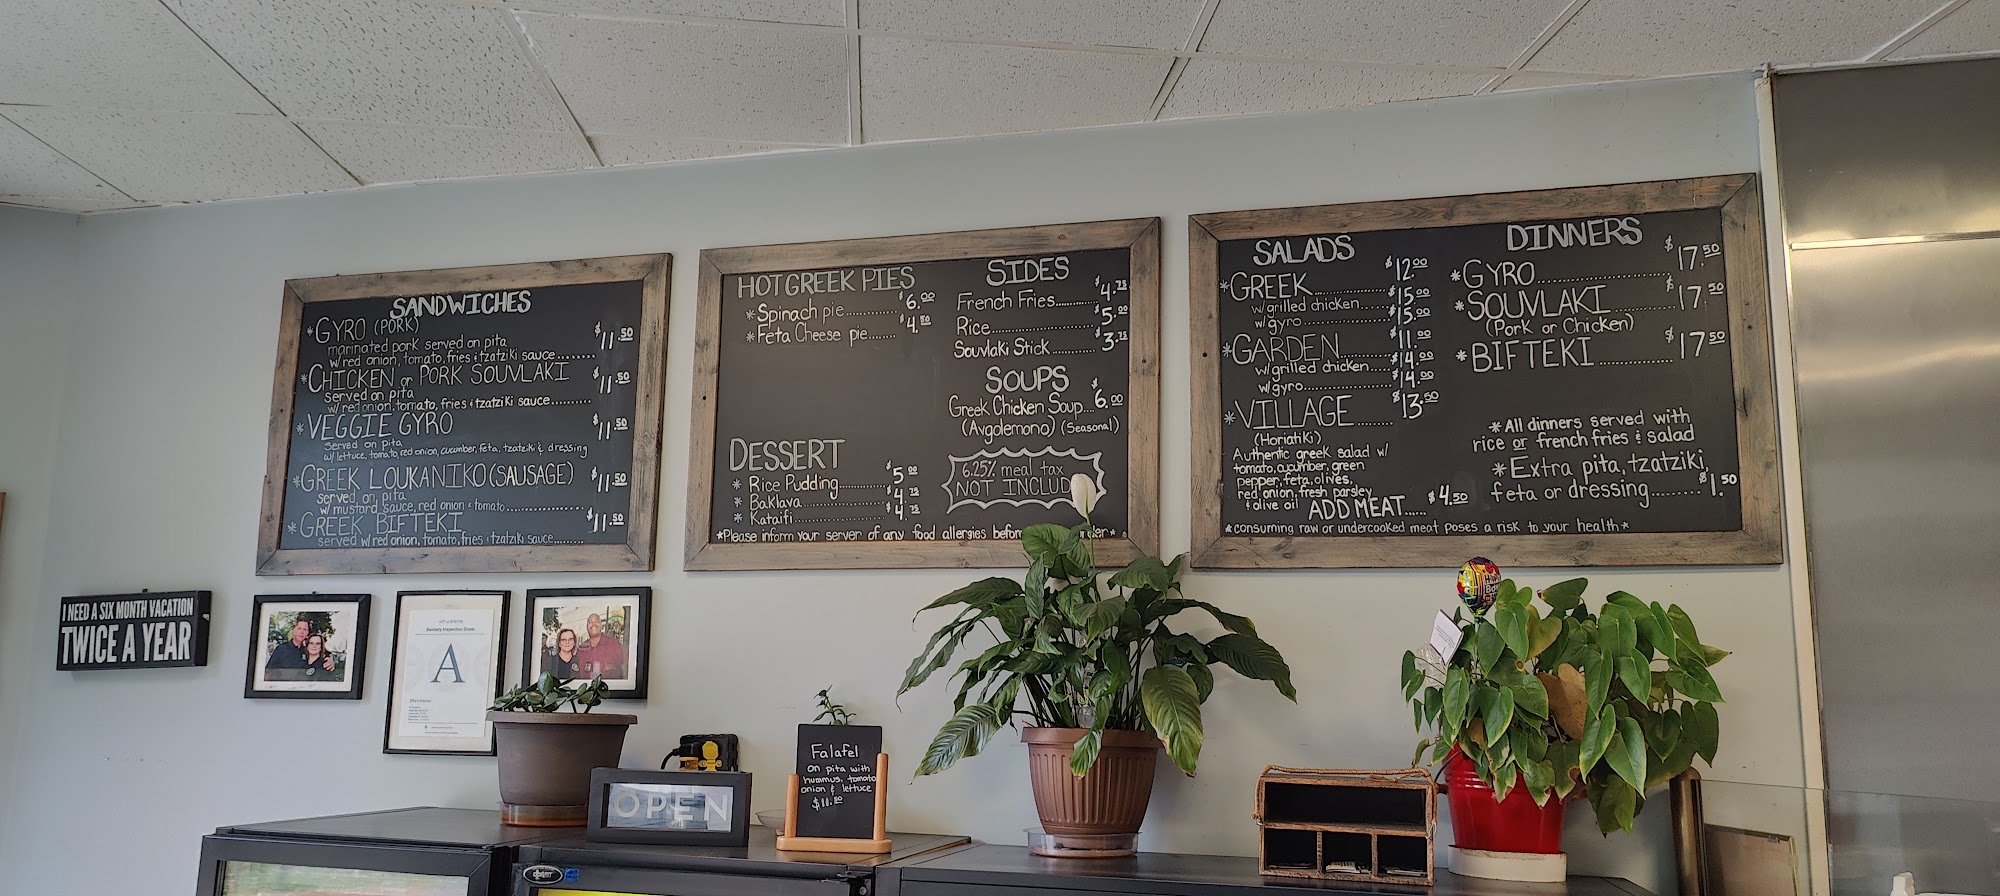 SANDWICHES
*GYRO (PORK)
marinated pork served on pita
w/red onion, tomato, fries & tzatziki sauce........ $11.50
*CHICKEN or PORK SOUVLAKI $11.50
served on pita
w/red onion, tomato, fries & tzatziki sauce..........
*VEGGIE GYRO $11.50
served on pita
w/ lettuce, tomato, red onion, cucumber, feta, tzatziki & dressing
*GREEK LOUKANIKO (SAUSAGE) $11.50
served on pita
w/ mustard sauce, red onion & tomato....................
*GREEK BIFTEKI $11.50
served w/red onion, tomato, fries & tzatziki sauce.........
HOT GREEK PIES
*Spinach pie............ $6.00
*Feta Cheese pie....... $4.50
DESSERT
* Rice Pudding............ $5.00
* Baklava................. $4.75
* Kataifi................. $4.75
SIDES
French Fries.......... $4.75
Rice..................... $5.00
Souvlaki Stick........... $3.75
SOUPS
Greek Chicken Soup.... $6.00
(Avgolemono) (Seasonal)
6.25% meal tax
NOT
*Please inform your server of any food allergies
SALADS
*GREEK............ $12.00
w/grilled chicken.... $15.00
w/gyro............ $15.00
*GARDEN......... $11.00
w/grilled chicken.... $14.00
w/gyro............ $14.00
*VILLAGE........ $13.50
(Horiatiki)
Authentic greek salad w/
tomato, cucumber, green
pepper, feta, olives,
red onion, fresh parsley
& olive oil
ADD MEAT...... $4.50
DINNERS
*GYRO...................... $17.50
*SOUVLAKI............ $17.50
(Pork or Chicken)
*BIFTEKI.............. $17.50
*All dinners served with
rice or french fries & salad
*Extra pita, tzatziki,
feta or dressing........ $1.50
*consuming raw or undercooked meat poses a risk to your health*
I NEED A SIX MONTH VACATION
TWICE A YEAR
Sanitary Inspection Grade
A
OPEN
Falafel
on pita with
hummus, tomato
onion & lettuce
$11.50